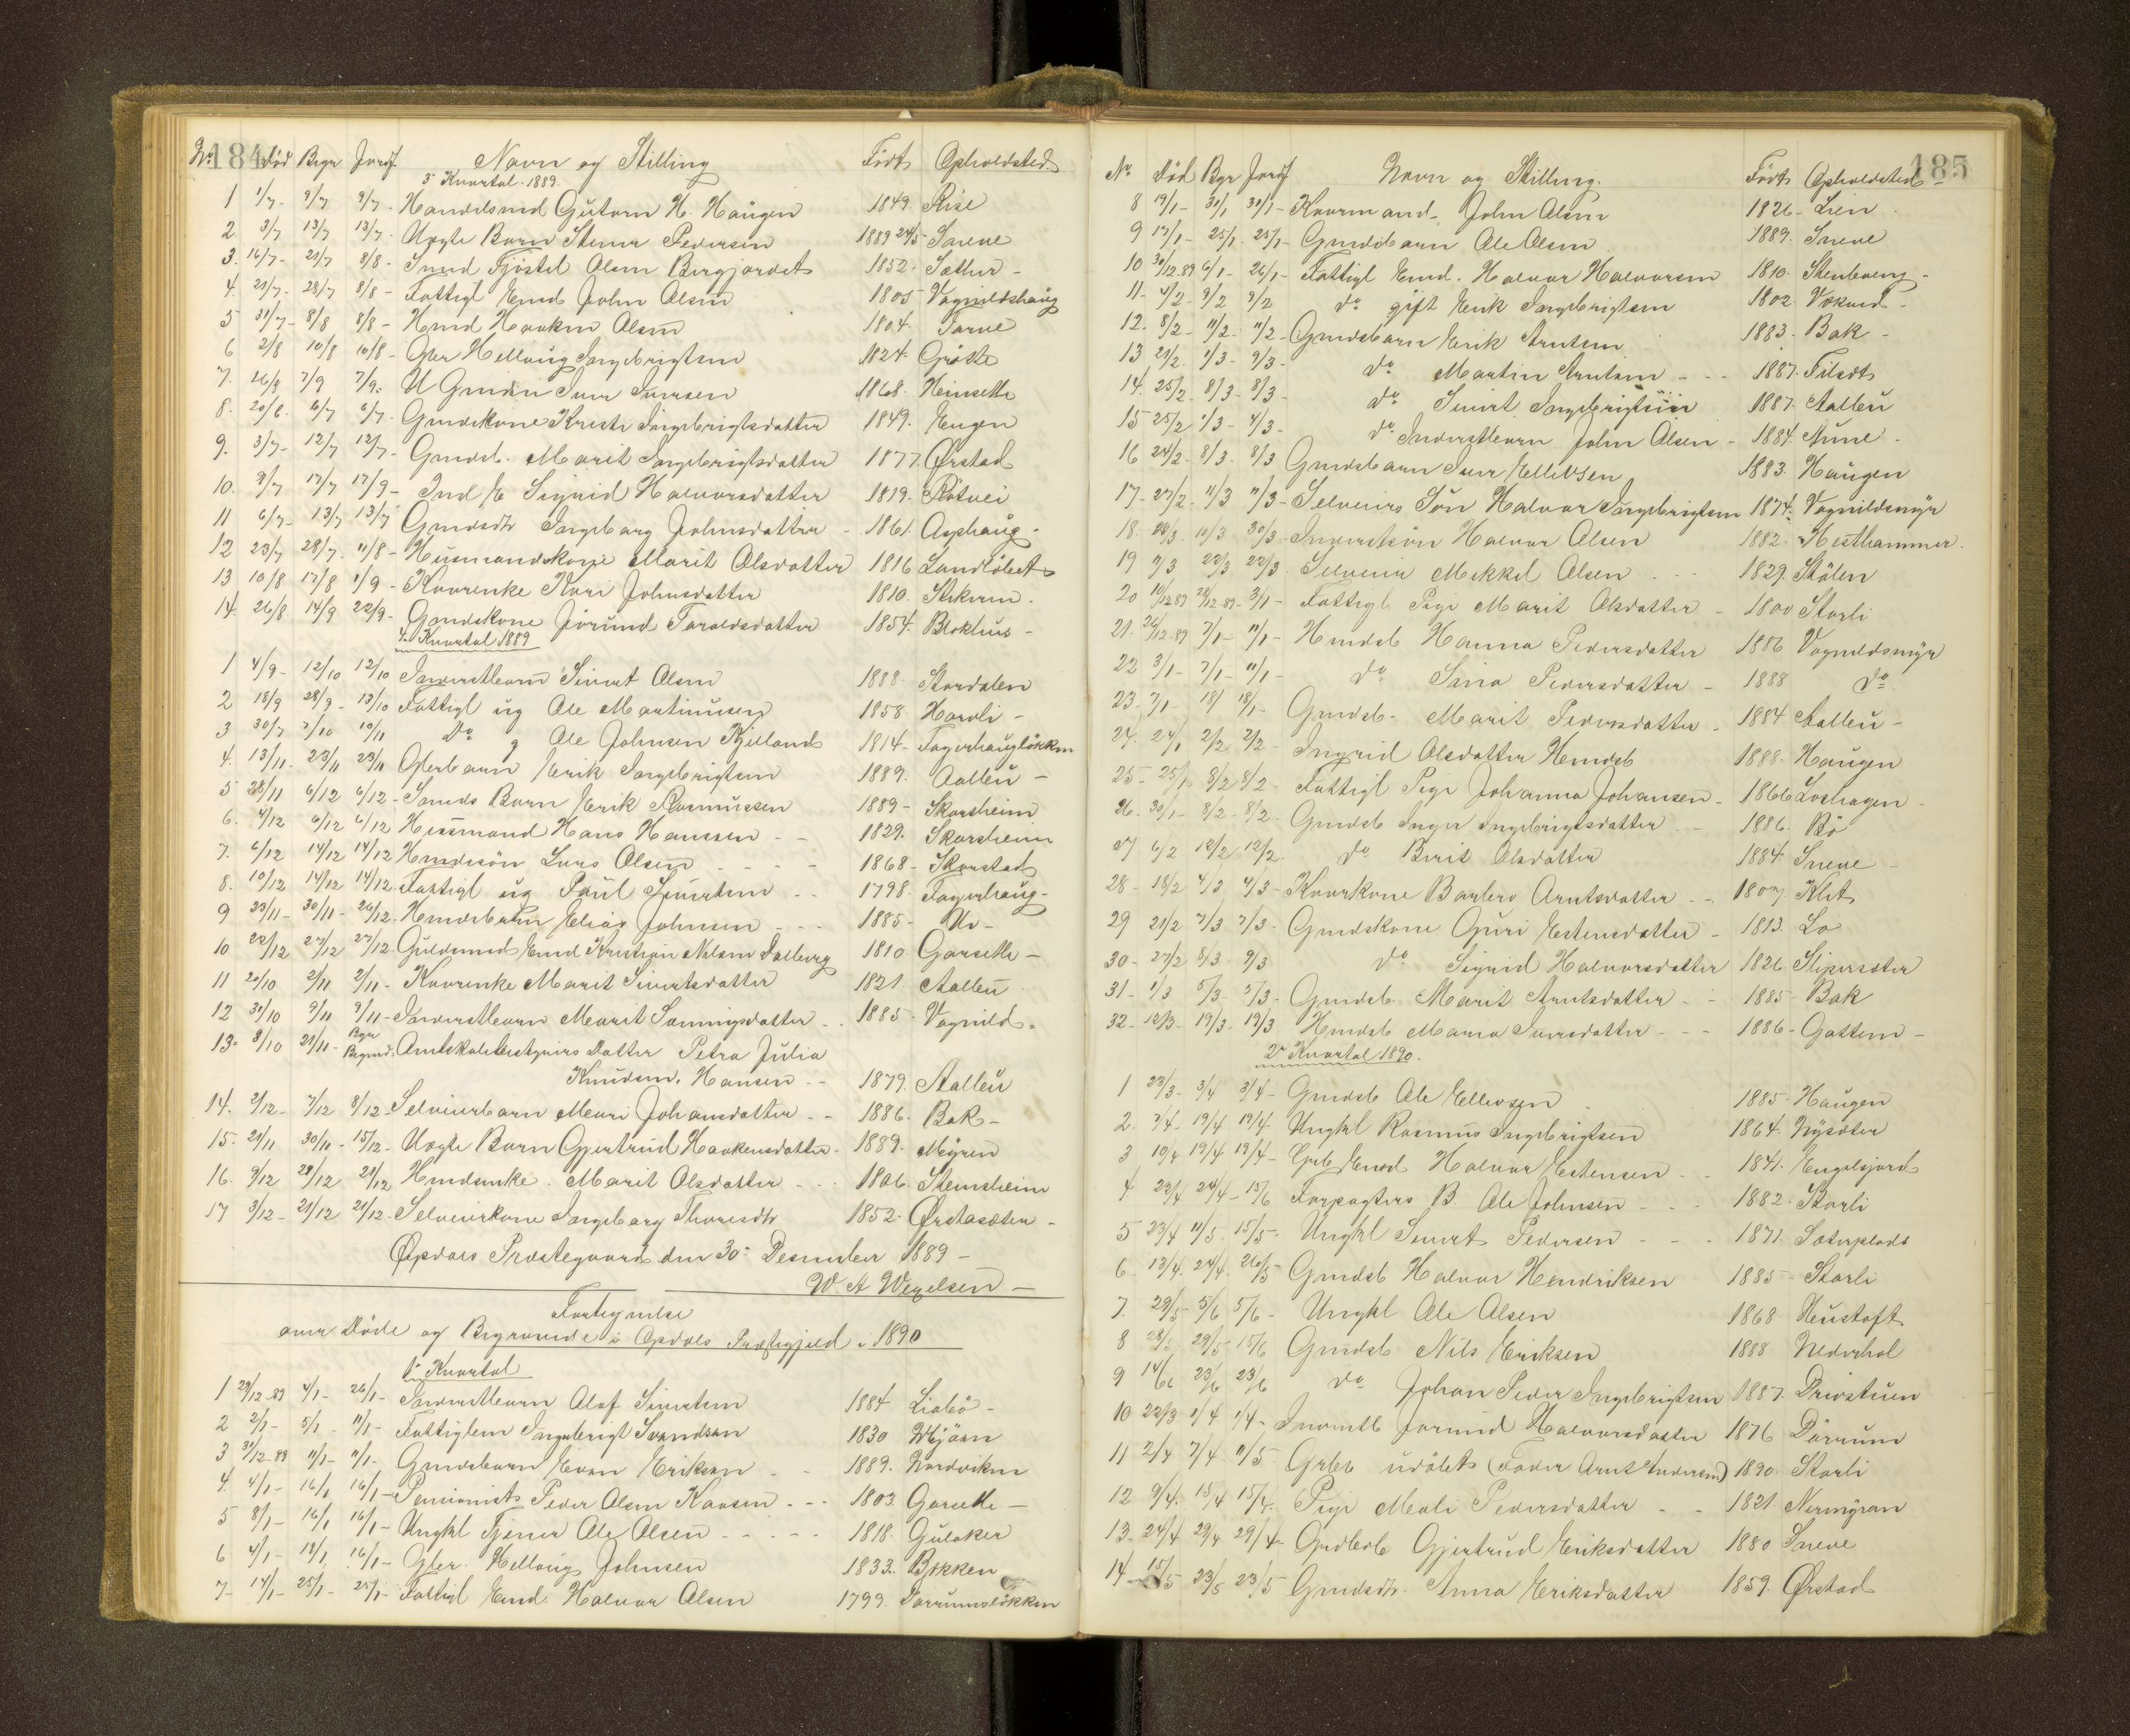 184
No Død Begr Jordf Navn og Stilling Født Opholdsted
3 Kvartal 1889.
1 1/7 - 9/7 9/7 - Handelsmd Gutorm H. Haugen 1849. Rise
2 3/7 13/7 13/7 - Uægte Barn Steiner Pedersen 1889 24/5 Sneve
3. 16/7 - 21/7 8/8 - Smed Fjöstel Olsen Bergjordet 1852. Sæther -
4. 21/7 - 28/7 8/8 - Fattigl Emd John Olsen 1805 Vognildshaug
5 31/7 - 8/8 8/8 - Kmd Haaken Olsen 1804. Torve
6 2/8 10/8 10/8 - Gbr Helloug Ingebrigtsen 1824. Grötte
7. 26/8 7/9 7/9. U Gmdsn Iver Iversen 1868. Heimseth
8. 20/6. 6/7 6/7. Gmdskone Kristi Ingebrigtsdatter 1849. Engen
9. 3/7 - 12/7 12/7 - Gmdsb. Marit Ingebrigtsdatter 1877. Ørstad
10. 9/7 17/7 17/9 - Ind E Sigrid Halvorsdatter 1819. Rötvei
11 6/7 - 13/7 13/7 Gmdsdr Ingeborg Johnsdatter - 1861. Aashaug -
12 23/7 28/7 - 11/8 - Husmandskone Marit Olsdatter 1816 Landlöbet
13 10/8 17/8 1/9 - Kaarenke Kari Johnsdatter 1810. Stkrun.
14. 26/8 14/9 22/9 - Gmdskone Jörund Taraldsdatter 1854. Blokhus -
4. Kvartal 1889
1 4/9 - 12/10 12/10 Inderstbarn Sivert Olsen 1888. Stordalen
2 18/9 28/9 - 13/10 Fattigl ug Ole Martinusen 1858 Hardli -
3 30/7 7/10 10/11 Do g Ole Johnsen Kjelland 1814 - Fagerhauglökken
4. 13/11 - 23/11 23/11 Gbrbarn Erik Ingebrigtsen 1889. Aalbu -
5 28/11 6/12 6/12 - Smeds Barn Erik Rasmussen 1889 - Skorsheim
6. 4/12 6/12 6/12 Husmand Hans Hanssen - - 1829. Skorsheim
7. 6/12 14/12 14/12 Hmdssön Lars Olsen - - - 1868 - Skorstad
8. 10/12 14/12 14/12 - Fattigl ug Paul Sivertsen - - 1798. Fagerhaug -
9 23/11 - 30/11 - 26/12. Hmdsbarn Elias Johnsen - - - 1885 - Mo -
10 22/12 27/12 27/12. Guldsmed Emd Kristian Nilsen Dalberg 1810. Gorseth -
11 20/10 2/11 2/11 - Kaarenke Marit Sivertsdatter 1821. Aalbu
12 31/10 9/11 9/11 - Inderstbarn Marit Sæmingsdatter - - 1885 - Vognild -
13. 8/10 21/11 - Begr Begmd. Amtskolebestyrers Datter Petra Julia
Knudsen. Hansen - - 1879. Aalbu
14. 2/12 - 7/12 8/12 - Selveierbarn Mari Johansdatter - - 1886. Bak -
15. 21/11 30/11 - 15/12 - Uægte Barn Gjertrud Haakensdatter - 1889. Myren
16. 9/12 28/12 21/12 Hmdsenke. Marit Olsdatter - - - 1806. Stensheim
17 3/12 - 21/12 21/12 - Selveierkone Ingeborg Thoresdtr 1852. Ørstasæter -
Opdals Præstegaard den 30te December 1889 -
W A Wexelsen -
Fortegnelse
over Døde og Begravede i Opdals Præstegjeld i 1890
1ste Kvartal
1 29/12-89 4/1 - 26/1 - Inderstbarn Olaf Sivertsen 1884 Liabö -
2 2/1 - 5/1 - 11/1 - Fattiglem Ingebrigt Svendsen 1830 Mjöen
3 31/12-89 11/1 - 11/1 - Gmdsbarn Even Eriksen - - 1889. Nordviken
4. 4/1 - 16/1 16/1 - Pensionist Peder Olsen Kaasen - - - 1803. Gorseth -
5 8/1 - 16/1 16/1 - Ungkl Tjener Ole Olsen - - - - - 1818. Gulaker
6 4/1 - 18/1 16/1 - Gbr. Helloug Johnsen 1833. Bækken
7 - 14/1 - 25/1 - 25/1 - Fattigl Emd Halvor Olsen 1799. Dorrumslökken
185
No Død Begr Jordf Navn og Stilling. Født Opholdsted -
8 19/1 - 30/1 30/1 - Kaarmand - John Olsen 1826 - Lien
9 17/1 - 25/1 - 25/1 - Gmdsbarn Ole Olsen 1889. Sneve
10 30/12.89 6/1 - 26/1 - Fattigl Emd. Halvor Halvorsen 1810. Stenboeng -
11 - 4/2 - 9/2 9/2 do gift Erik Ingebrigtsen 1802 Vekved -
12. 8/2 - 11/2 - 11/2 - Gmdsbarn Erik Arntsen 1883. Bak -
13 21/2 1/3 - 9/3 - do Martin Arntsen - - - 1887. Fildt
14. 25/2 8/3 8/3 - do Sivert Ingebrigtsen 1887. Aalbu
15 25/2 1/3 - 4/3 - do Inderstbarn John Olsen - 1884. Aune -
16 24/2 - 8/3 - 8/3 Gmdsbarn Iver Ellevsen 1883. Haugen
17 - 27/2 - 11/3 11/3 - Selveiers Sön Halvor Ingebrigtsen 1874. Vognildsmyr
18. 28/3 10/3 30/3 - Inderstsön Halvor Olsen 1882. Mesthammer.
19 7/3 22/3 22/3 - Selveier Mikkel Olsen - - - 1829. Stölen
20 16/12 89 28/12 89 - 3/1 - Fattigl Pige Marit Olsdatter - 1800 Storli
21. 26/12-89 7/1 - 11/1 - Hmdsb Hanna Pedersdatter 1886 Vognildsmyr
22 3/1 - 7/1 - 11/1 - do Sina Pedersdatter - 1888 do
23. 7/1 - 18/1 18/1 - Gmdsb - Marit Pedersdatter - 1884 Aalbu -
24. 24/1 2/2 2/2 - Ingrid Olsdatter Hmdsb 1888. Haugen
25 - 25/1 8/2 8/2 - Fattigl Pige Johanna Johansen - 1866 Loshagen -
26 - 30/1 - 8/2 - 8/2 - Gmdsb Inger Ingebrigtsdatter - - 1886. Bö
27 6/2 12/2 12/2 do Berit Olsdatter 1884. Sneve -
28 - 18/2 4/3 4/3 - Kaarkone Barbro Arntsdatter - - 1807 Klit
29 21/2 7/3 7/3 - Gmdskone Guri Estensdatter - 1813. Lo
30 - 27/2 8/3 - 9/3 do Sigrid Halvorsdatter 1826 Slipersæter
31 - 1/3 5/3 - 5/3 - Gmdsb Marit Arntsdatter - - 1885 - Bak
32 - 12/3 - 19/3 - 19/3 Hmdsb Maria Iversdatter - - - 1886 - Gottem -
2de Kvartal 1890.
1 23/3 - 3/4 3/4 - Gmdsb Ole Ellevsen - 1885 - Haugen
2. 7/4 - 19/4 19/4 Ungkl Rasmus Ingebrigtsen 1864. Nysæter
3 10/4 19/4 19/4 - Gbr Emd Halvor Estensen - - 1841. Engelsjord
4 23/4 24/4 - 15/6 Forpagters B. Ole Johnsen - - - 1882 - Storli
5 23/4 11/5 15/5 - Ungkl Sivert Pedersen - - - 1871. Sæterplads
6 - 13/4. 24/4. 26/5 Gmdsb Halvor Hendriksen 1885 - Storli
7. 29/5 5/6 5/6 - Ungkl Ole Olsen 1868 Heustoft
8 28/5 - 29/5 - 15/6 Gmdsb Nils Eriksen 1888 Nedrehol
9 14/6 23/6 23/6 do Johan Peder Ingebrigtsen 1887. Drivstuen
10 22/3 1/4 1/4 - Inderstb Jorund Halvorsdatter 1876 Dörrum
11 2/4 7/4 11/5 Gbrb udöbt (Fader Arnt Andersen) 1890. Storli
12 9/4. 15/4 15/4. Pige Mali Pedersdatter - - 1821. Nermyran
13. 24/4 29/4 29/4 - Gmdbrb Gjertrud Eriksdatter 1880 Sneve
14 - 15/5 23/5 23/5 Gmdsdr. Anna Eriksdatter 1859. Ørstad